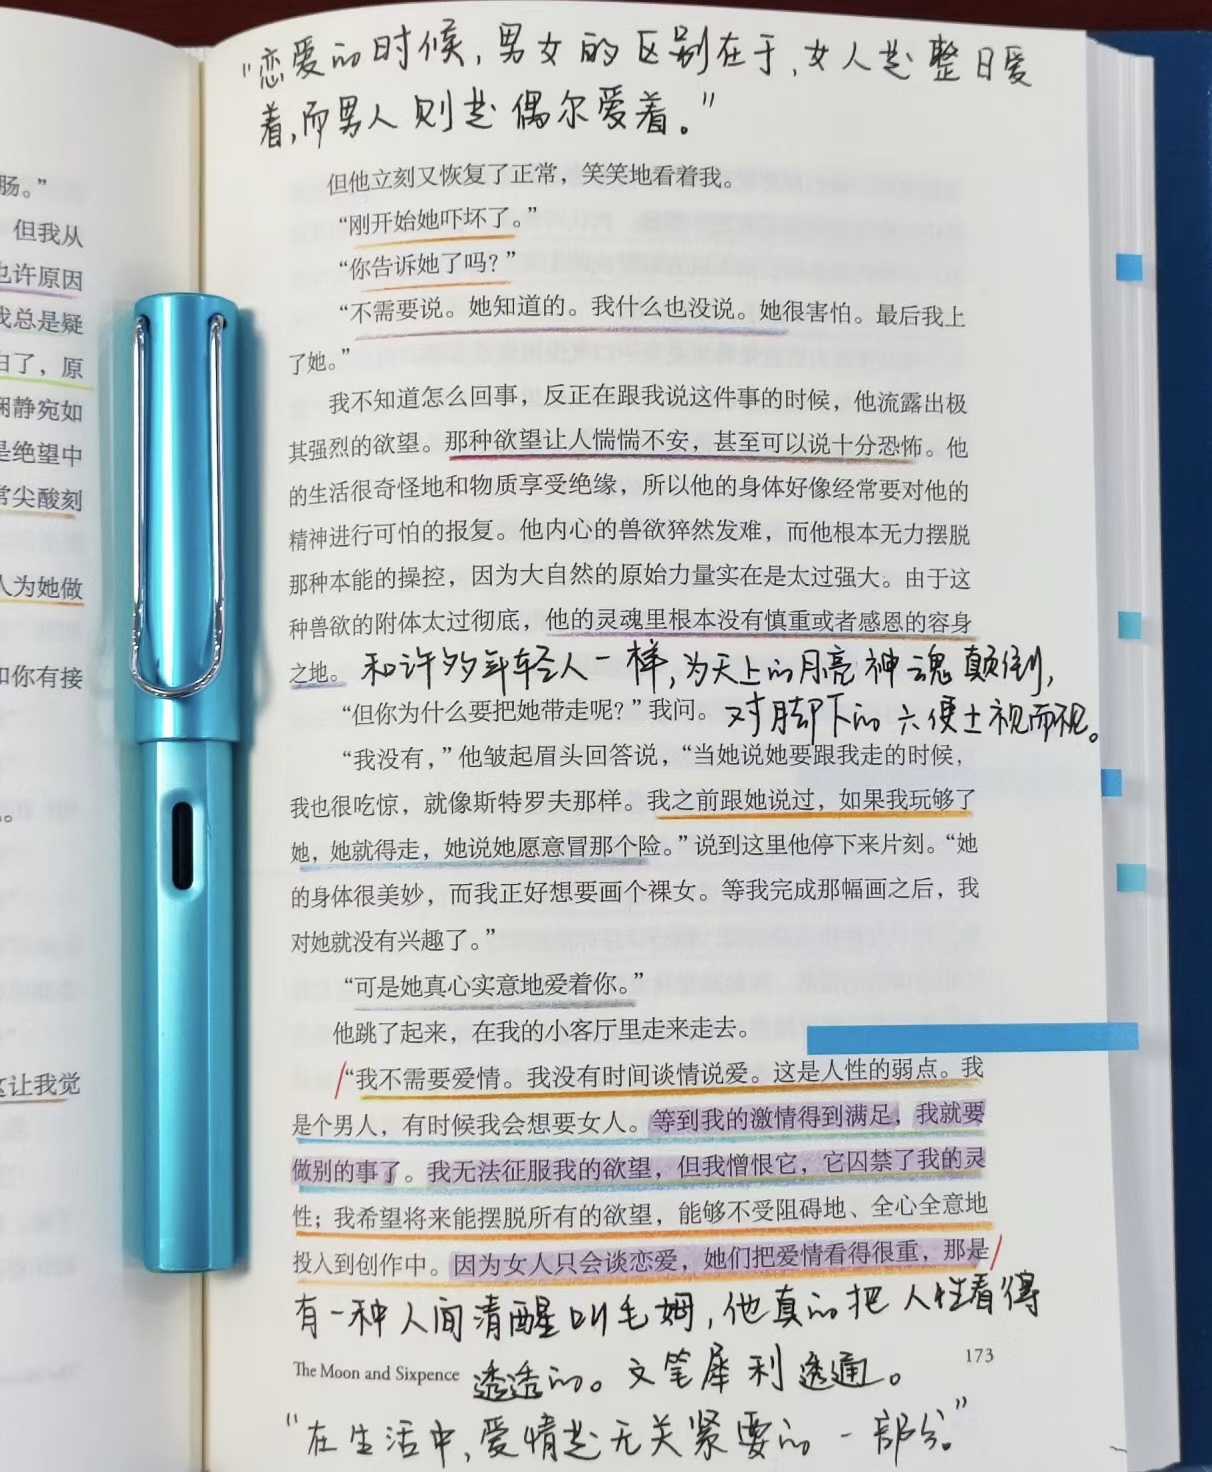 肠。”
但我从
也许原因
我总是疑
白了，原
娴静宛如
是绝望中
常尖酸刻
人为她做
和你有接
这让我觉
“恋爱的时候，男女的区别在于，女人是整日爱
着，而男人则是偶尔爱着。”
但他立刻又恢复了正常，笑笑地看着我。
“刚开始她吓坏了。”
“你告诉她了吗？”
“不需要说。她知道的。我什么也没说。她很害怕。最后我上
了她。”
我不知道怎么回事，反正在跟我说这件事的时候，他流露出极
其强烈的欲望。那种欲望让人惴惴不安，甚至可以说十分恐怖。他
的生活很奇怪地和物质享受绝缘，所以他的身体好像经常要对他的
精神进行可怕的报复。他内心的兽欲猝然发难，而他根本无力摆脱
那种本能的操控，因为大自然的原始力量实在是太过强大。由于这
种兽欲的附体太过彻底，他的灵魂里根本没有慎重或者感恩的容身
之地。
和许多年轻人一样，为天上的月亮神魂颠倒，
对脚下的六便士视而不见。
“但你为什么要把她带走呢？”我问。
“我没有，”他皱起眉头回答说，“当她说她要跟我走的时候，
我也很吃惊，就像斯特罗夫那样。我之前跟她说过，如果我玩够了
她，她就得走，她说她愿意冒那个险。”说到这里他停下来片刻。“她
的身体很美妙，而我正好想要画个裸女。等我完成那幅画之后，我
对她就没有兴趣了。”
“可是她真心实意地爱着你。”
他跳了起来，在我的小客厅里走来走去。
“我不需要爱情。我没有时间谈情说爱。这是人性的弱点。我
是个男人，有时候我会想要女人。等到我的激情得到满足，我就要
做别的事了。我无法征服我的欲望，但我憎恨它，它囚禁了我的灵
性；我希望将来能摆脱所有的欲望，能够不受阻碍地、全心全意地
投入到创作中。因为女人只会谈恋爱，她们把爱情看得很重，那是
有一种人间清醒叫毛姆，他真的把人性看得
透透的。文笔犀利透通。
The Moon and Sixpence
173
“在生活中，爱情是无关紧要的一部分。”